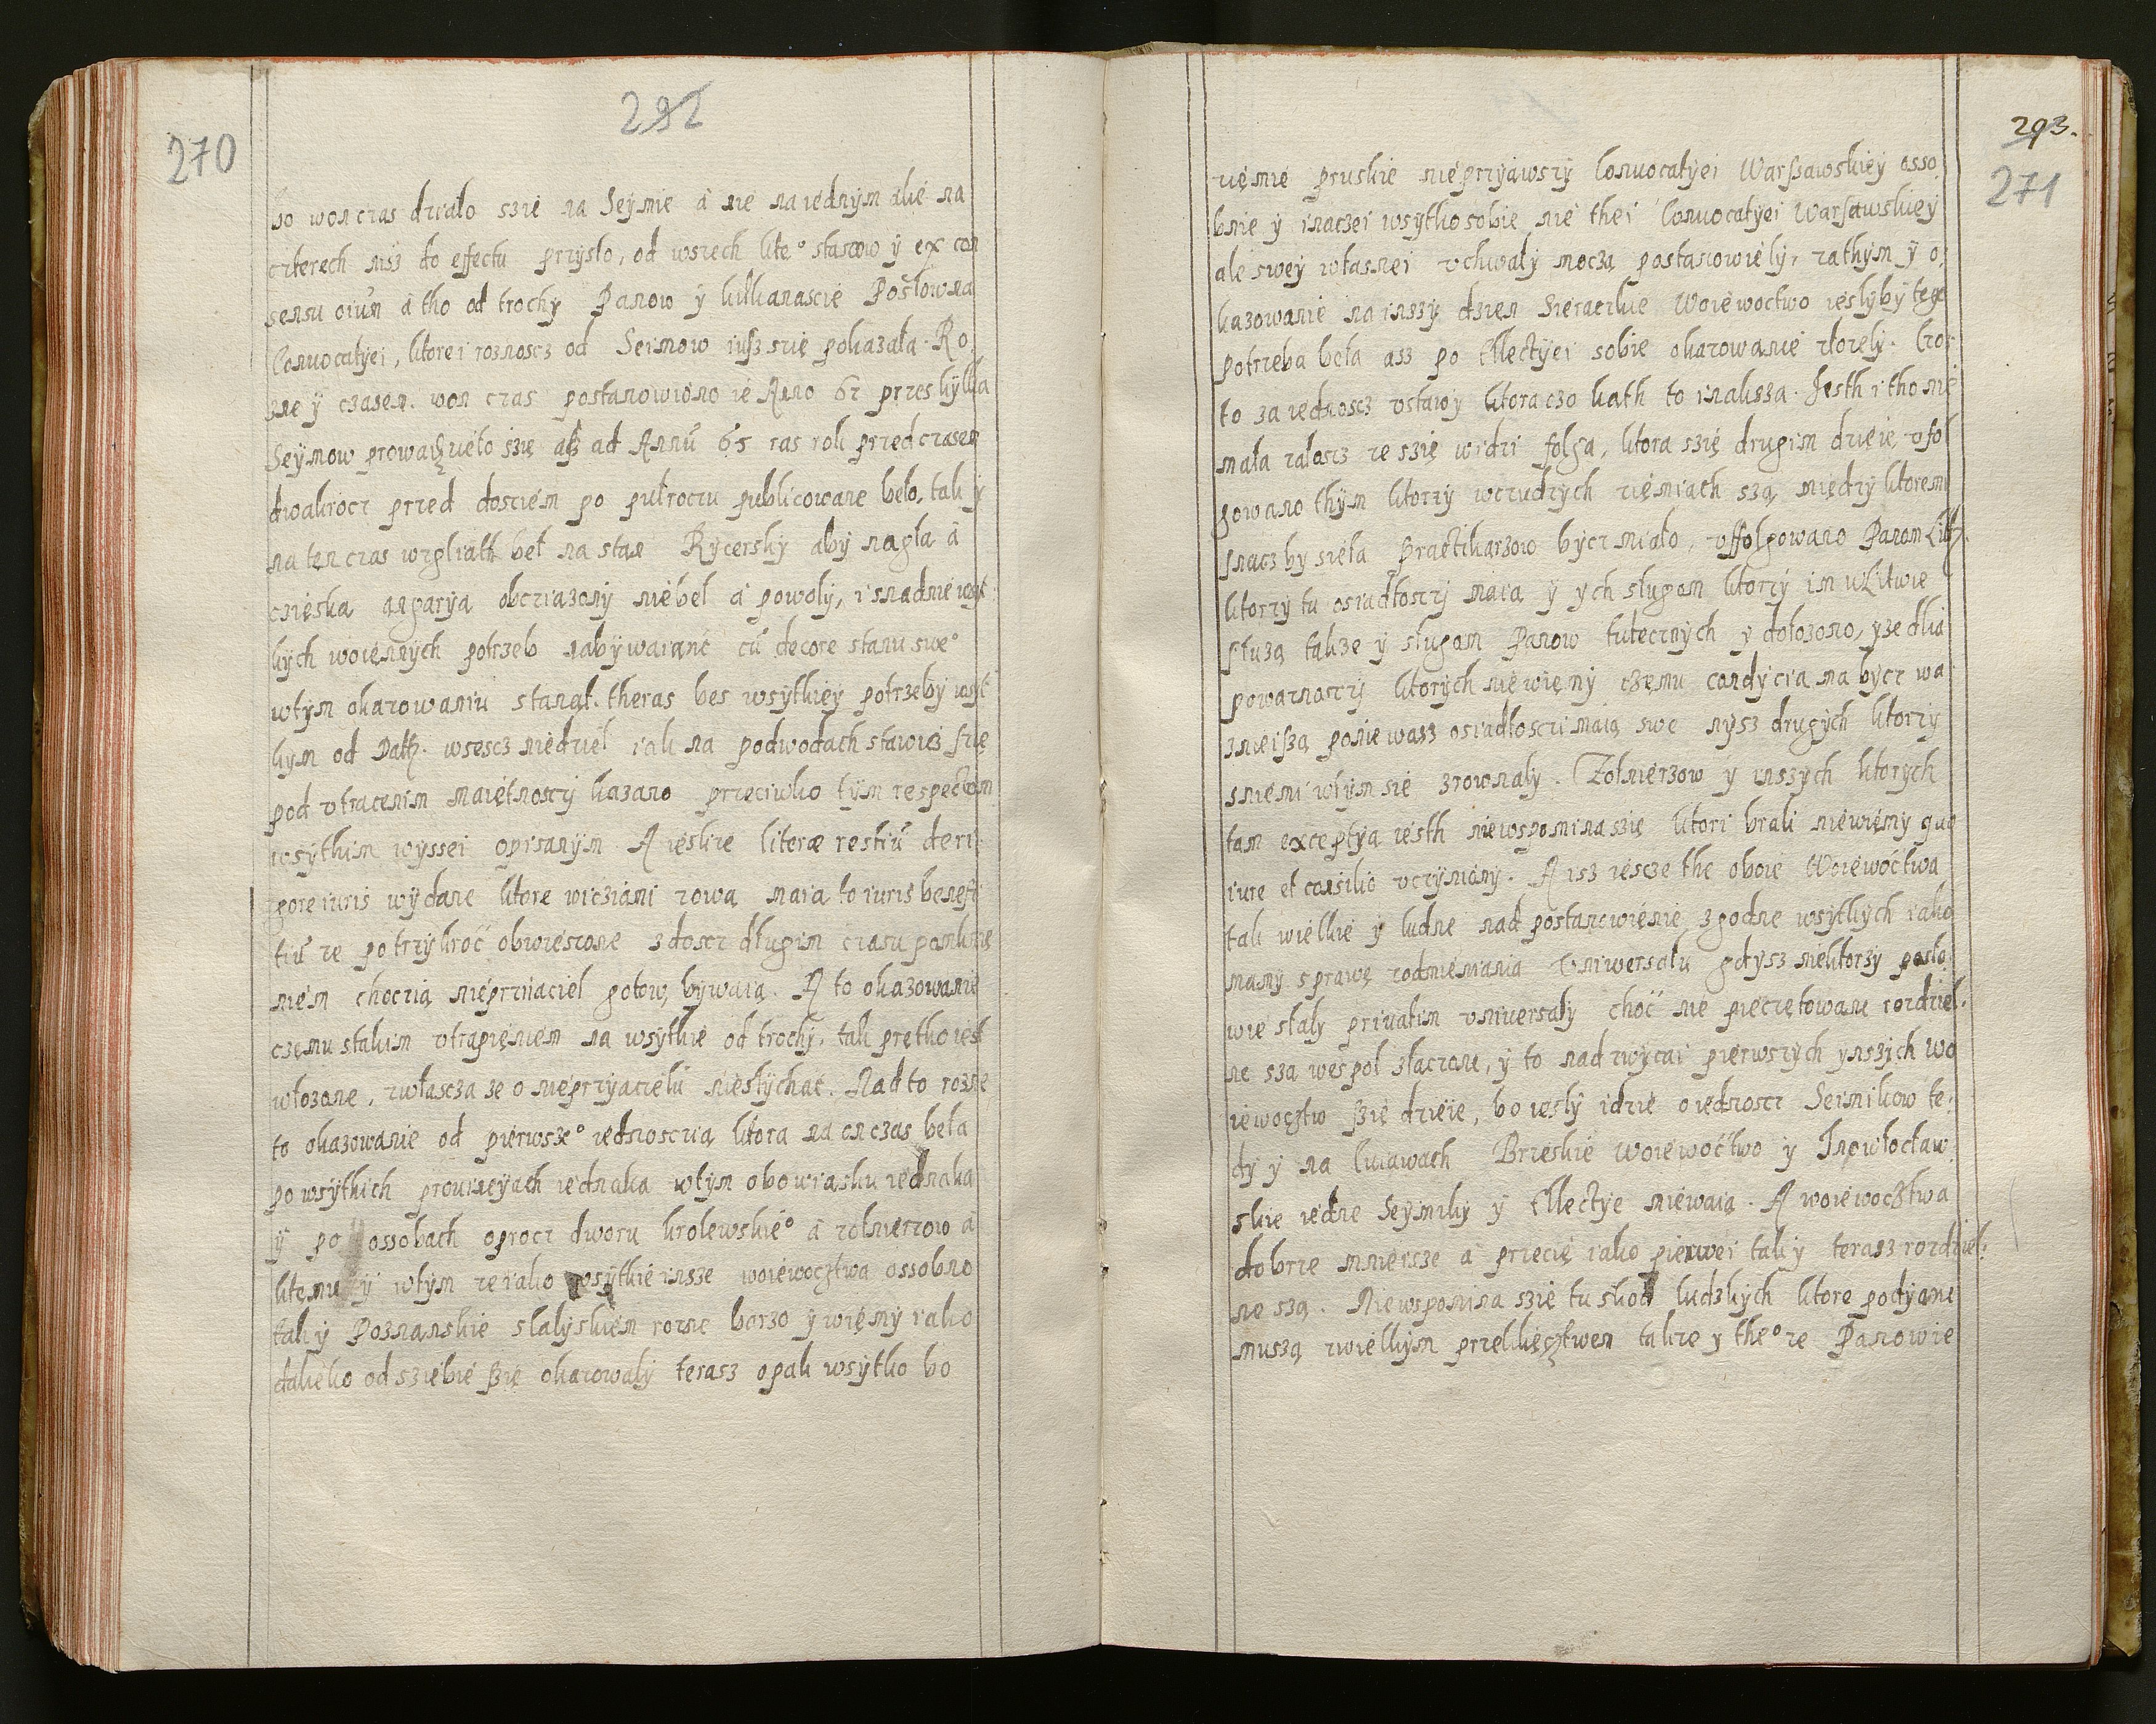 292
270
bo won czas dziáło szie na Seymie á nie na iednym alie na
czterech nisz do effectu przysło, od wszech kte° stanow y ex con
sensu oium á tho od trochy Panow y kilkanascie Posłow na
Conuocatyei, ktorei roznoscz od Seimow iusz szie pokazała. Ro
zne y czasem. won czas postanowiono ie Anno 62 przes kylka
Seymow prowadzieło szie asz ad Annū 65 ras rok przed czasem
dwakrocz przed dosciem po pułroczu publicowane beło, tak y
na ten czas wzgliath beł na stan Rycersky aby nagła á
czięska angarya obcziazony niebeł á powoly, i snadnie wsyt
kych woiennych potrzeb nabywaianć cū decore stanu swe°
wtym okazowaniu stanął. theras bes wsytkiey potrzeby wsyt
kym od Dath. wsescz niedziel iak na podwodach stawicz się
pod vtracenim maiętnosczy kazano przeciwko tym respectom
wsytkim wyssei opisanym A ieslize literæ restiū deri
pore iuris wydane ktore wiciami zową maia to iuris benefi
tiū ze potrzykroć obwiesczone zdoscz długim czasu pomknie
niem choczia nieprziiaciel gotow, bywaia. A to okazowanie
czemu stakim vtrapieniem na wsytkie od trochy, tak prętko iest
włozone, zwłascza ze o nieprzyacielu niesłychać. Nad to rozne
to okazowanie od pierwsze° iednosczią ktora na on czas beła
po wsytkich prouincyach iednaka wtym obowiasku iednaka
y po ossobach oprocz dworu krolewskie° á zolnierzow á
ktemu y wtym ze iako wsytkie insze woiewocztwa ossobno
tak y Poznanskie s kalyskiem rozne barzo y wiemy iako
daliéko od sziebie szię okazowaly terasz opak wsytko bo
293.
271
ziemie pruskie nieprzyawszy Conuocatyei Warszawskiey osso
bnie y inaczei wsytko sobie nie thei Conuocatyei Warsawskiey
ale swey własnei vchwaly moczą postanowiely, zathym y o
kazowanie na inszy dzien Sieradzkie Woiewoctwo ieslyby tego
potrzeba beła asz po Ellectyei sobie okazowanie złozely. Czos
to za iednoscz vstawy ktora czo kath to inaksza. Jesth i tho nie
mała załoscz ze szię widzi folga, ktora szię drugim dzieie, vfol
gowano thym ktorzy wczudzych ziemiach szą, między ktoremi
snacz by sieła Practikarzow bycz miało, vffolgowano Panom Lith.
ktorzy tu osiadłosczy maią y ych sługom ktorzy im w Litwie
służą takze y sługom Panow tutecznych y dołozono, yze dlia
powaznosczy ktorych niewiemy czemu condycia ma bycz wa
znieiszą poniewasz osiadłosci maią swe nysz drugych ktorzy
sniemi wtym sie zrownaly. Zołnierzow y inszych ktorych
tam exceptya iesth niewspomina sie ktori brali niewiemy quo
iure et consilio vczyniony. A isz iescze the oboie Woiewoćtwa
tak wielkie y ludne nad postanowienie zgodne wsytkych iako
mamy sprawę zodmieniania Vniwersału gdysz niektorzy posło
wie staly priuatim vniuersaly choć nie pieczętowane rozdziel
ne sza wespoł złaczone, y to nad zwyczai pierwszych ynszych wo
iewocztw szię dzieie, bo iesly idzie o iednoscz Seimikow te
dy y na kuiawach Brzeskie woiewoćtwo y Inowłocław
skie iedne Seymiky y Ellectye miewaią. A woiewocztwa
dobrze mnieisze a przecię iako pierwei tak y terasz rozdziel
ne szą. Niewspomina szię tu skod ludzkych ktore podyąmi
muszą zwielkym przelkięcztwem takze y the°ze Panowie